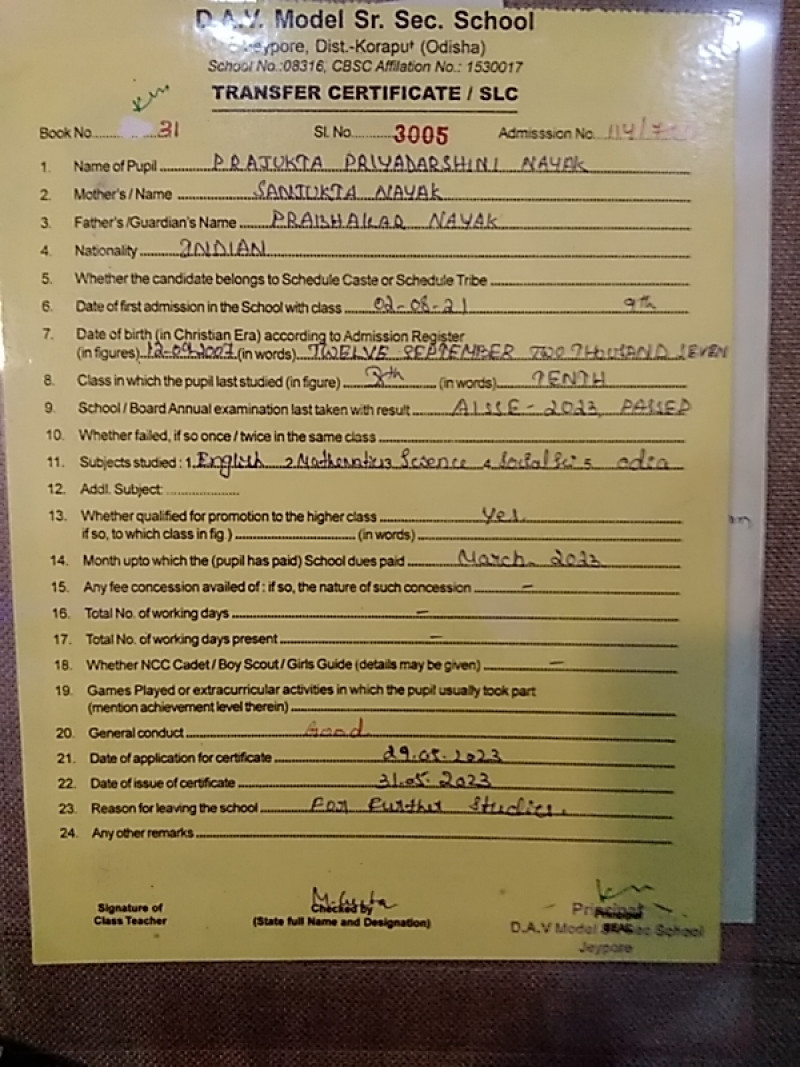 D.A.V. Model Sr. Sec. School
Jeypore, Dist.-Koraput (Odisha)
School No.:08316, CBSC Affilation No.: 1530017
TRANSFER CERTIFICATE / SLC
Book No. 31 Sl. No. 3005 Admisssion No. 114/
1. Name of Pupil PRAJUKTA PRIYADARSHINI NAYAK
2. Mother's / Name SANJUKTA NAYAK
3. Father's /Guardian's Name PRABHAKAR NAYAK
4. Nationality INDIAN
5. Whether the candidate belongs to Schedule Caste or Schedule Tribe
6. Date of first admission in the School with class 02-08-21 9th
7. Date of birth (in Christian Era) according to Admission Register
(in figures) 12-09-2007 (in words) TWELVE SEPTEMBER TWO THOUSAND SEVEN
8. Class in which the pupil last studied (in figure) (in words) TENTH
9. School / Board Annual examination last taken with result AISSE - 2023, PASSED
10. Whether failed, if so once / twice in the same class
11. Subjects studied : 1. English 2 Mathematics 3 Science 4 Social Sci 5 odia
12. Addl. Subject:
13. Whether qualified for promotion to the higher class Yes.
if so, to which class in fig ) (in words)
14. Month upto which the (pupil has paid) School dues paid March - 2023
15. Any fee concession availed of : if so, the nature of such concession –
16. Total No. of working days –
17. Total No. of working days present –
18. Whether NCC Cadet / Boy Scout / Girls Guide (details may be given) –
19. Games Played or extracurricular activities in which the pupil usually took part
(mention achievement level therein)
20. General conduct Good
21. Date of application for certificate 29.05.2023
22. Date of issue of certificate 31.05.2023
23. Reason for leaving the school For Further Studies.
24. Any other remarks
Signature of
Class Teacher
Checked by
(State full Name and Designation)
Principal
D.A.V Model Sec School
Jeypore